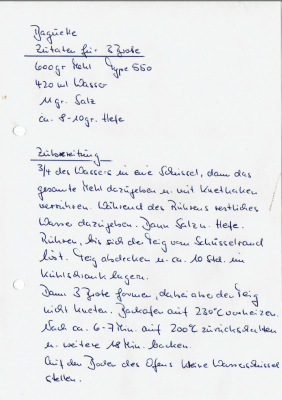 Baguette
Zutaten für 3 Brote
600gr Mehl Type 550
420 ml Wasser
11 gr. Salz
ca. 8-10gr. Hefe
Zubereitung
3/4 des Wassers in eine Schüssel, dann das
gesamte Mehl dazugeben u. mit Knethaken
verrühren. Während des Rührens restliches
Wasser dazugeben. Dann Salz u. Hefe.
Rühren, bis sich der Teig vom Schüsselrand
löst. Teig abdecken u. ca. 10 Std. im
Kühlschrank lagern.
Dann 3 Brote formen, dabei aber den Teig
nicht kneten. Backofen auf 230°C vorheizen.
Nach ca. 6-7 Min. auf 200°C zurückschalten
u. weitere 18 Min. backen.
Auf den Boden des Ofens kleine Wasserschüssel
stellen.